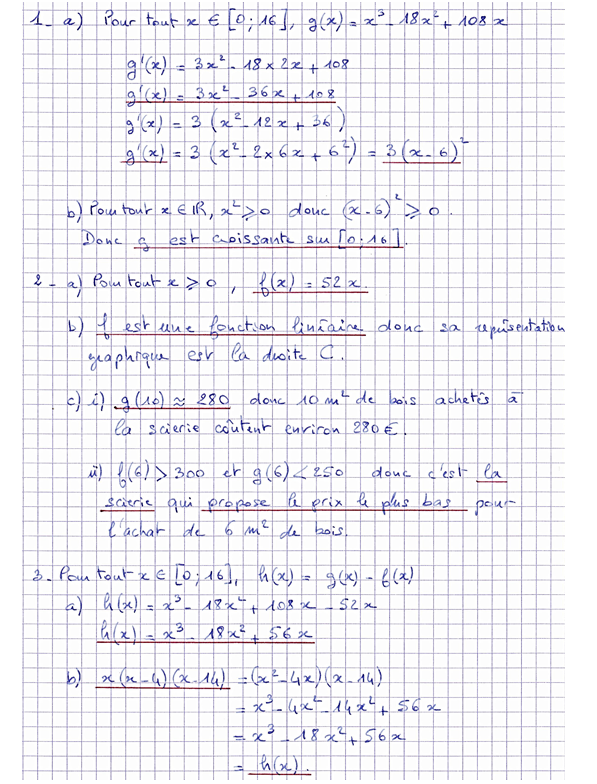 1- a) Pour tout x ∈ [0 ; 16], g(x) = x³ - 18x² + 108 x
g'(x) = 3x² - 18 × 2x + 108
g'(x) = 3x² - 36x + 108
g'(x) = 3 (x² - 12x + 36)
g'(x) = 3 (x² - 2×6x + 6²) = 3(x-6)²
b) Pour tout x ∈ ℝ, x² ⩾ 0 donc (x-6)² ⩾ 0.
Donc g est croissante sur [0 ; 16].
2- a) Pour tout x ⩾ 0, f(x) = 52 x.
b) f est une fonction linéaire donc sa représentation
graphique est la droite C.
c) i) g(10) ≈ 280 donc 10 m² de bois achetés à
la scierie coûtent environ 280 €.
ii) f(6) > 300 et g(6) < 250 donc c'est la
scierie qui propose le prix le plus bas pour
l'achat de 6 m² de bois.
3- Pour tout x ∈ [0 ; 16], h(x) = g(x) - f(x)
a) h(x) = x³ - 18x² + 108 x - 52x
h(x) = x³ - 18x² + 56 x
b) x(x-4)(x-14) = (x² - 4x)(x-14)
= x³ - 4x² - 14x² + 56 x
= x³ - 18x² + 56x
= h(x).